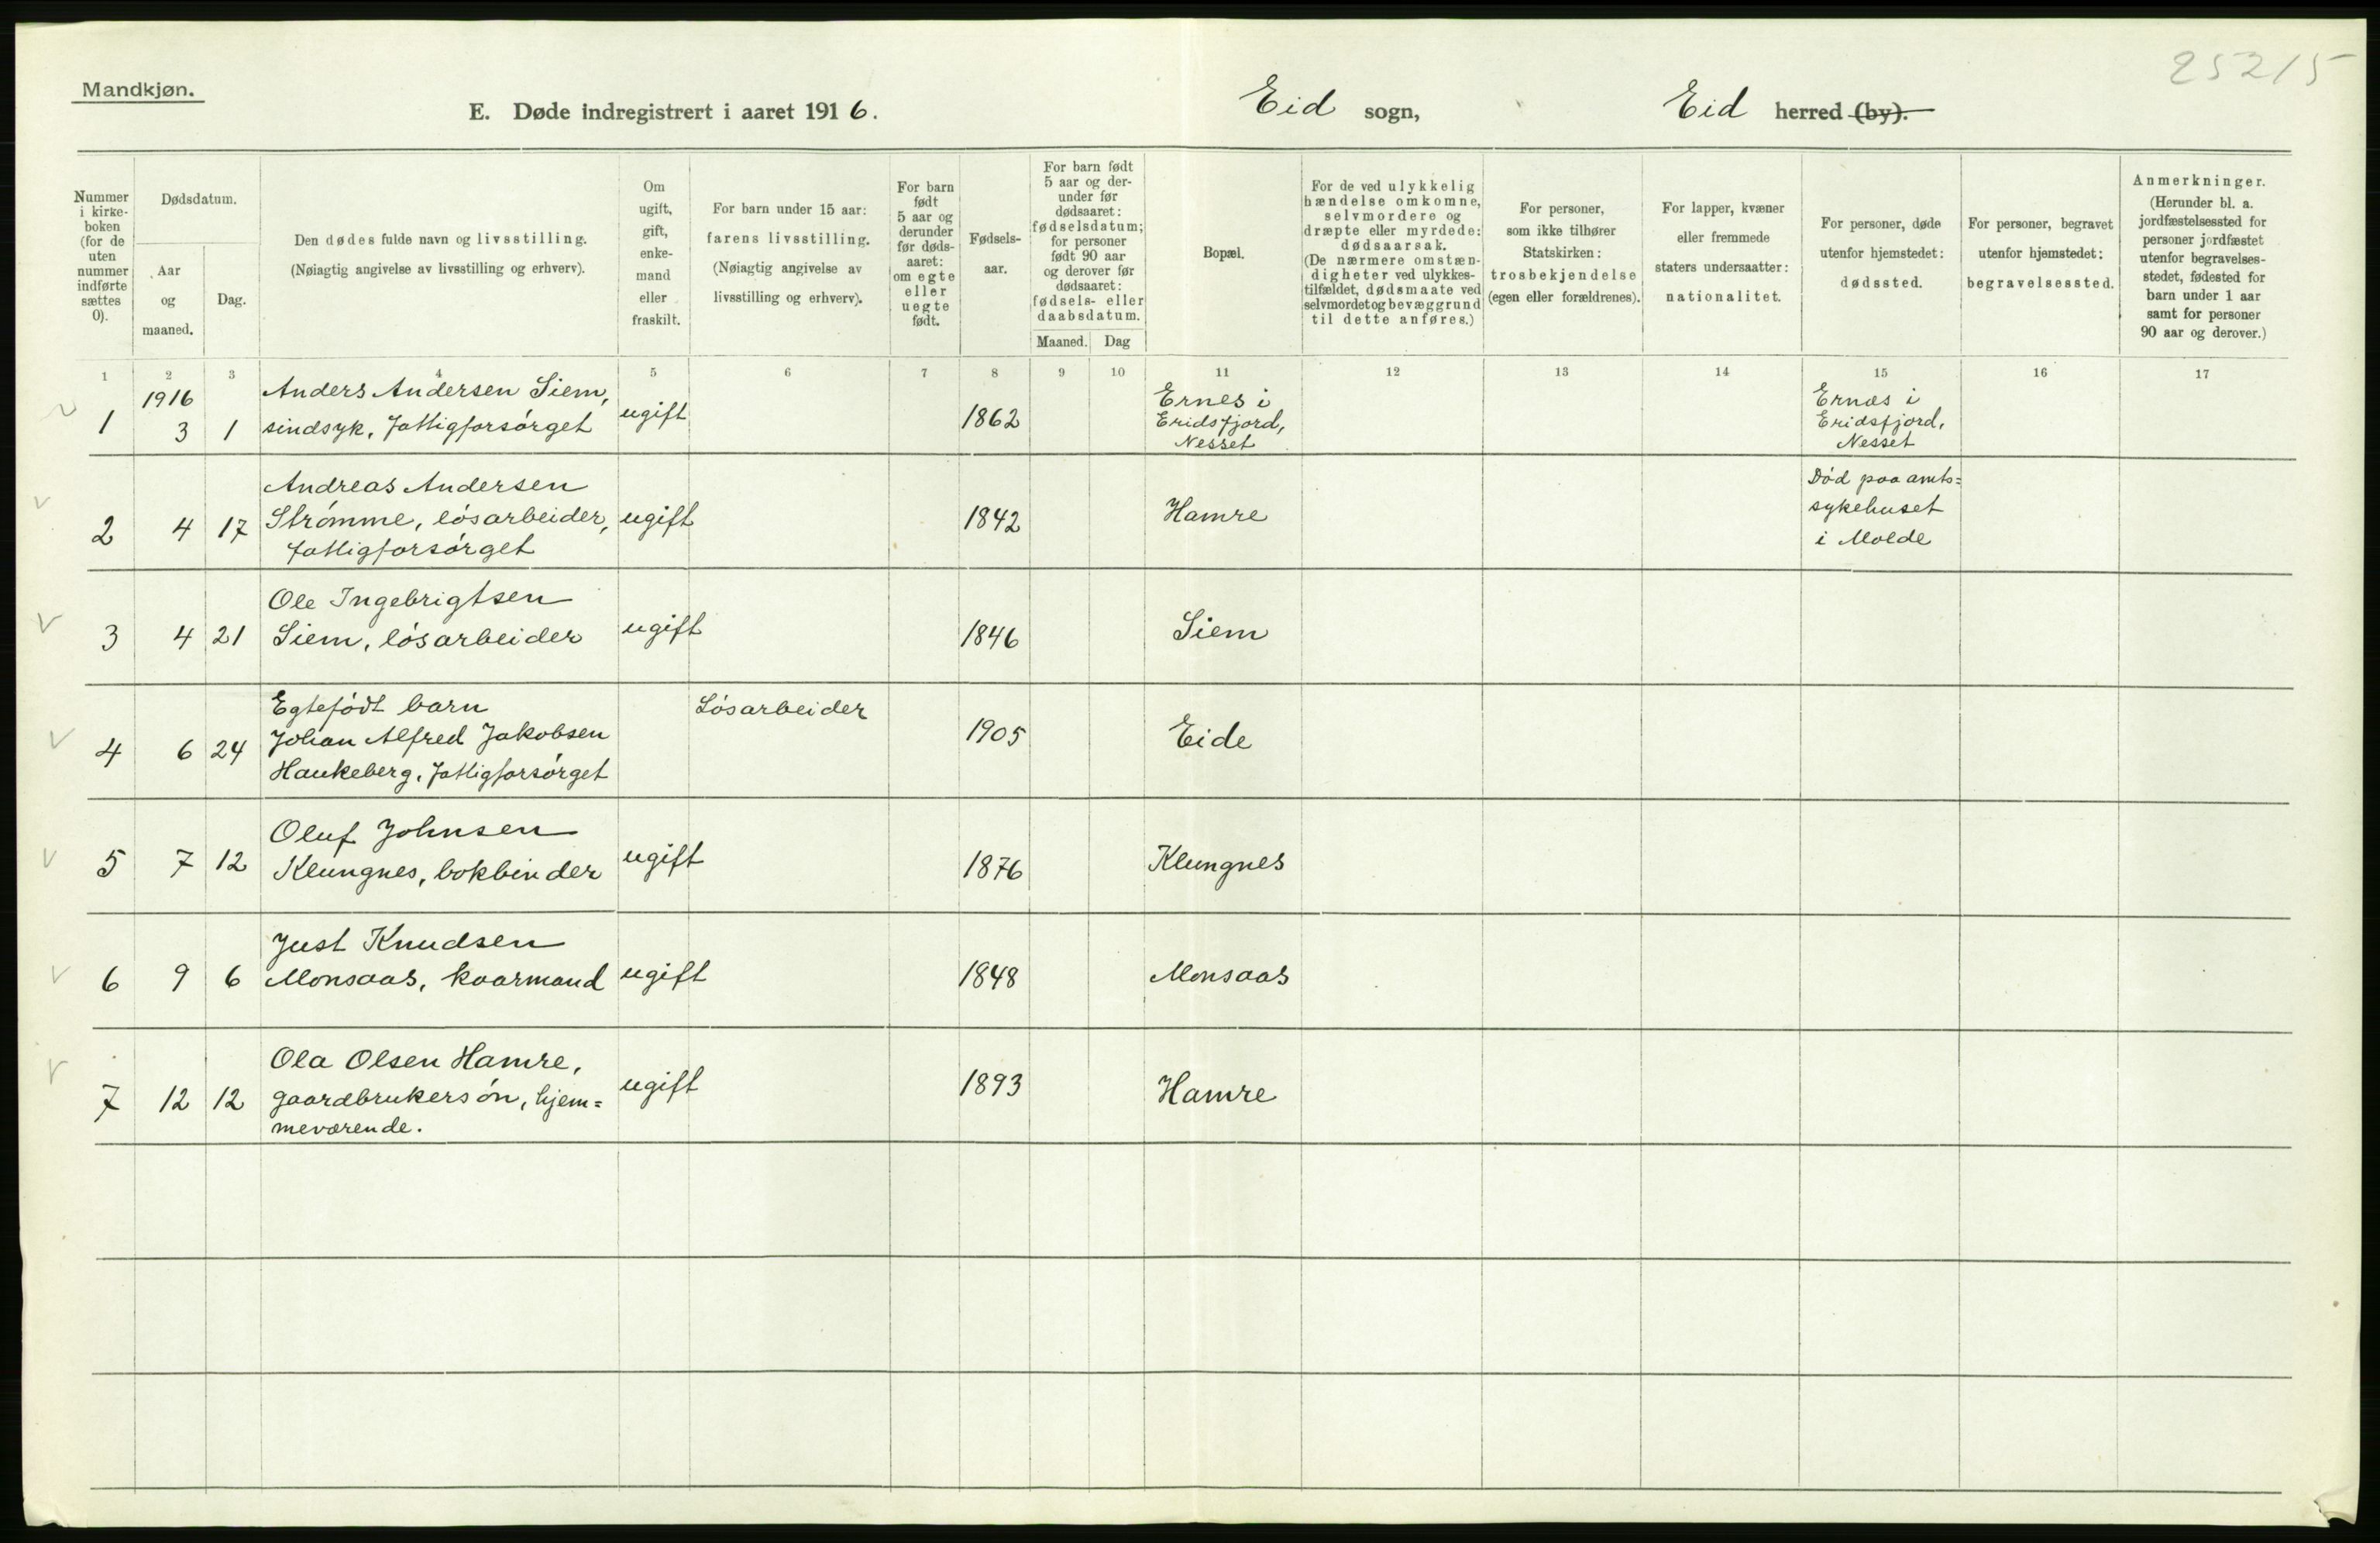 25215
Mandkjøn.
E. Døde indregistrert i aaret 1916. Eid sogn, Eid herred (by).
Nummer
i kirke-
boken
(for de
uten
nummer
indførte
sættes
0).
Dødsdatum.
Aar
og
maaned.
Dag.
Den dødes fulde navn og livsstilling.
(Nøiagtig angivelse av livsstilling og erhverv).
Om
ugift,
gift,
enke-
mand
eller
fraskilt.
For barn under 15 aar:
farens livsstilling.
(Nøiagtig angivelse av
livsstilling og erhverv).
For barn
født
5 aar og
derunder
før døds-
aaret:
om egte
eller
uegte
født.
Fødsels-
aar.
For barn født
5 aar og der-
under før
dødsaaret:
fødselsdatum;
for personer
født 90 aar
og derover før
dødsaaret:
fødsels- eller
daabsdatum.
Maaned. Dag
Bopæl.
For de ved ulykkelig
hændelse omkomne,
selvmordere og
dræpte eller myrdede:
dødsaarsak.
(De nærmere omstæn-
digheter ved ulykkes-
tilfældet, dødsmaate ved
selvmordet og bevæggrund
til dette anføres.)
For personer,
som ikke tilhører
Statskirken:
trosbekjendelse
(egen eller forældrenes).
For lapper, kvæner
eller fremmede
staters undersaatter:
nationalitet.
For personer, døde
utenfor hjemstedet:
dødssted.
For personer, begravet
utenfor hjemstedet:
begravelsessted.
Anmerkninger.
(Herunder bl. a.
jordfæstelsessted for
personer jordfæstet
utenfor begravelses-
stedet, fødested for
barn under 1 aar
samt for personer
90 aar og derover.)
1 2 3 4 5 6 7 8 9 10 11 12 13 14 15 16 17
1916
1 3 1
Anders Andersen Siem,
sindsyk, fattigforsørget
ugift
1862
Ernes i
Eridsfjord,
Nesset
Ernes i
Eridsfjord,
Nesset
2 4 17
Andreas Andersen
Strømme, løsarbeider,
fattigforsørget
ugift
1842
Hamre
Død paa amts=
sykehuset
i Molde
3 4 21
Ole Ingebrigtsen
Siem, løsarbeider
ugift
1846
Siem
4 6 24
Egtefødt barn
Johan Alfred Jakobsen
Haukeberg, fattigforsørget
Løsarbeider
1905
Eide
5 7 12
Oluf Johnsen
Klungnes, bokbinder
ugift
1876
Klungnes
6 9 6
Just Knudsen
Monsaas, kaarmand
ugift
1848
Monsaas
7 12 12
Ola Olsen Hamre,
gaardbrukersøn, hjem=
meværende.
ugift
1893
Hamre